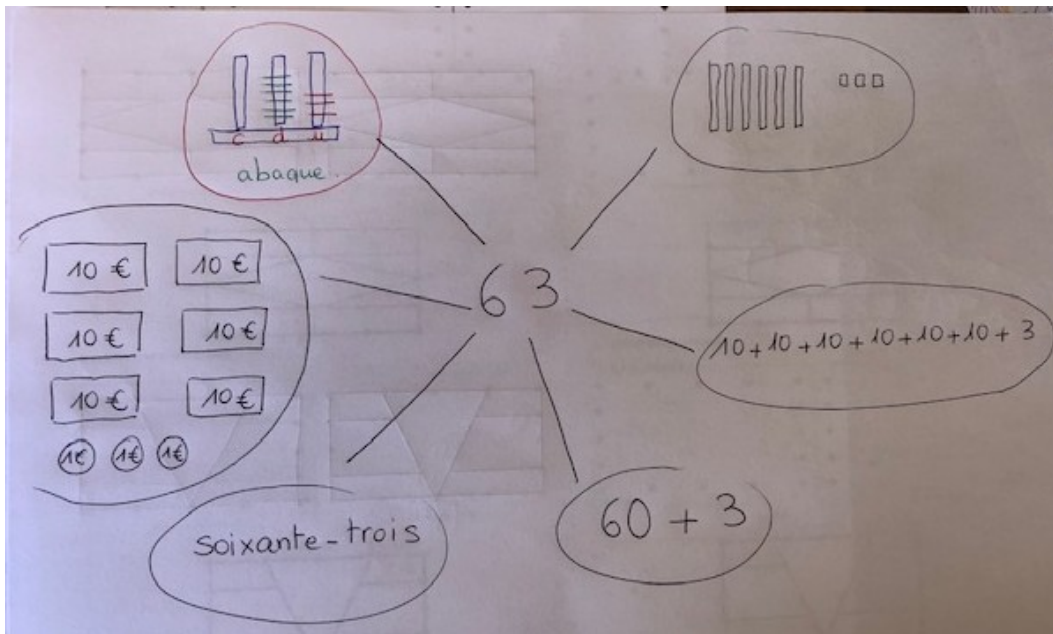 c d u
abaque.
10 € 10 €
10 € 10 €
10 € 10 €
1€ 1€ 1€
63
10 + 10 + 10 + 10 + 10 + 10 + 3
soixante-trois
60 + 3